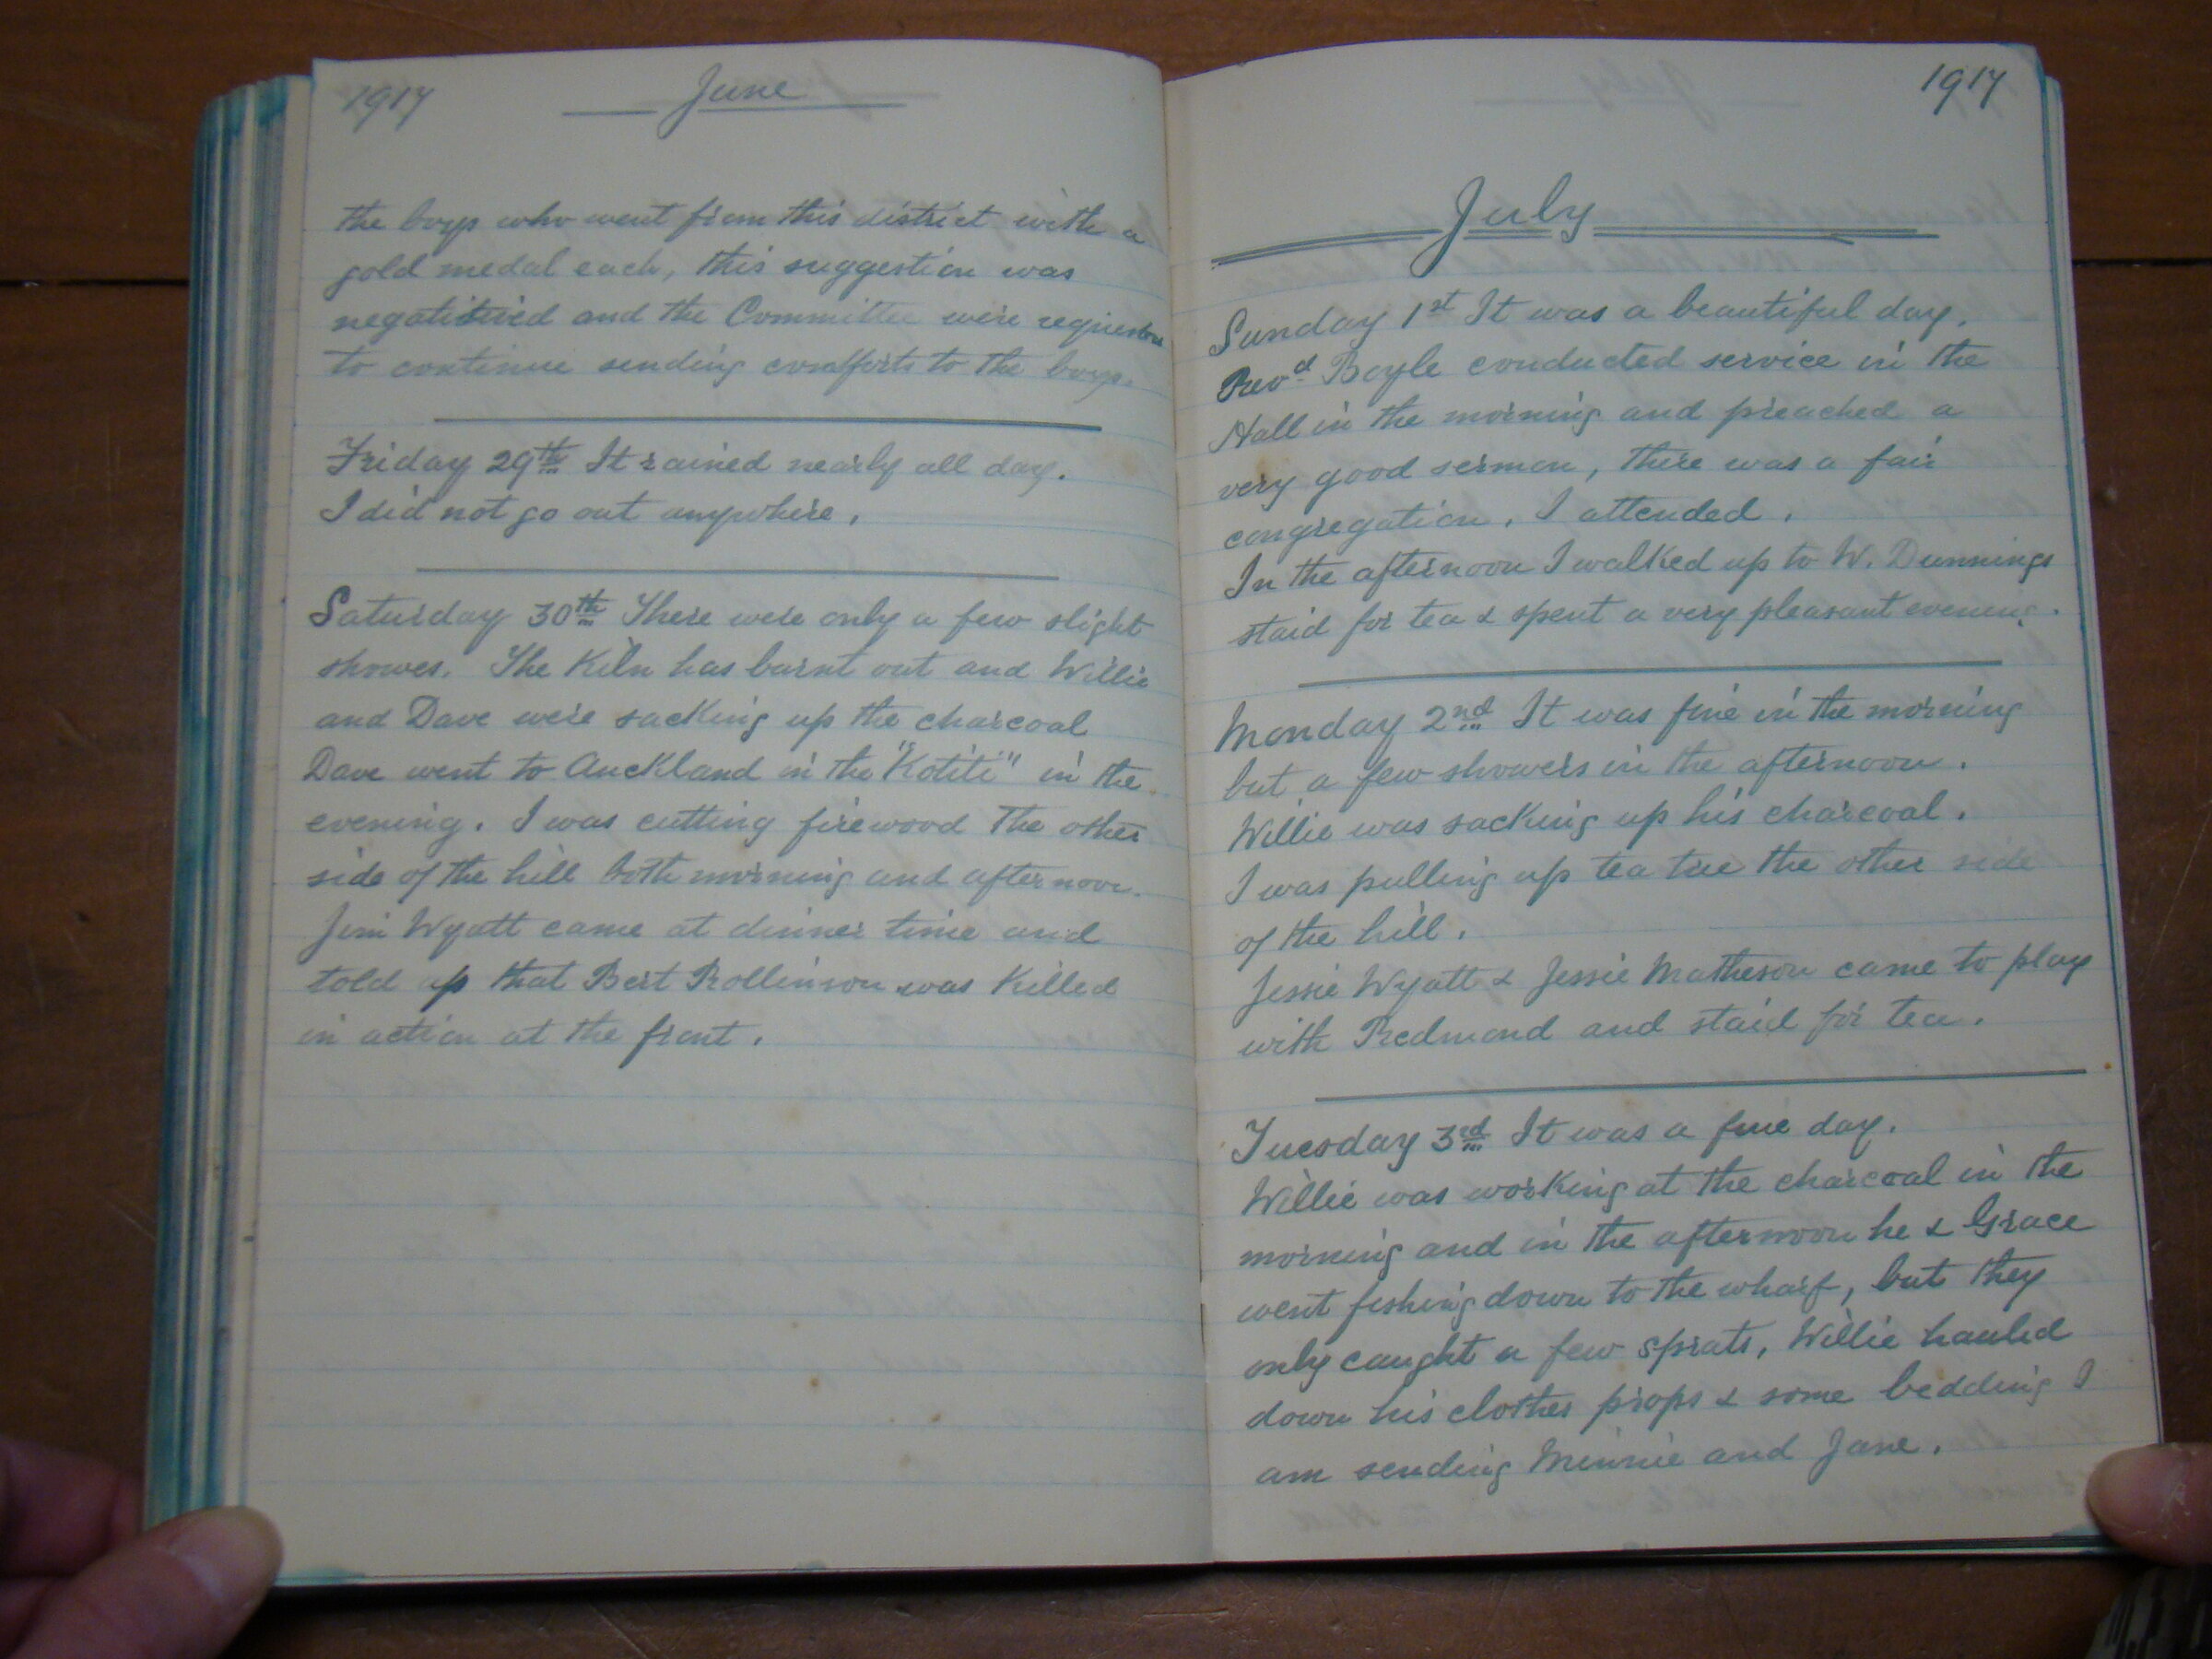 1917 June
the boys who went from this district with a
gold medal each, this suggestion was
and the Committee were
to continue sending comforts to the boys.
Friday 29th It rained nearly all day.
I did not go out anywhere.
Saturday 30th There were only a few slight
showes. The Kiln has burnt out and Willie
and Dave were sacking up the charcoal
Dave went to Auckland in the "Kotiti" in the
evening. I was cutting firewood the other
side of the hill both morning and afternoon.
Jim Wyatt came at dinner time and
told up that Bert Rollinson was Killed
in action at the front.
1917
July
Sunday 1st It was a beautiful day.
Revd Boyle conducted service in the
Hall in the morning and preached a
very good sermon, there was a fair
congregation. I attended.
In the afternoon I walked up to W. Dunnings
staid for tea & spent a very pleasant evening.
Monday 2nd It was fine in the morning
but a few showers in the afternoon.
Willie was sacking up his charcoal.
I was pulling up tea tree the other side
of the hill.
Jessie Wyatt & Jessie Matheson came to play
with Redmond and staid for tea.
Tuesday 3rd It was a fine day.
Willie was working at the charcoal in the
morning and in the afternoon he & Grace
went fishing down to the wharf, but they
only caught a few sprats, Willie hauled
down his clothes props & some bedding I
am sending Minnie and Jane.